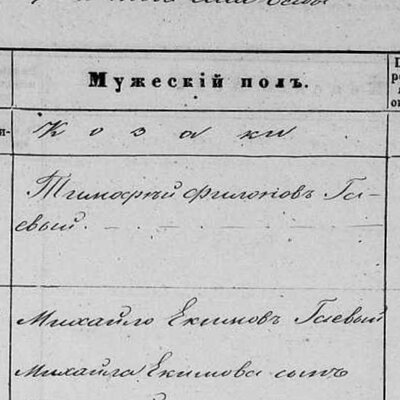 Мужескій полъ.
Козаки
Тимофей Филоновъ Га-
евый.
Михайло Екимовъ Гаевый
Михайла Екимова сынъ